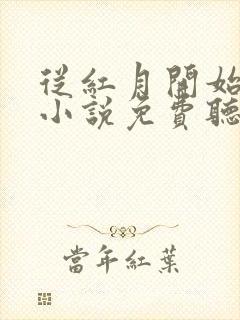 從紅月開始
小說免費聽
當年紅葉